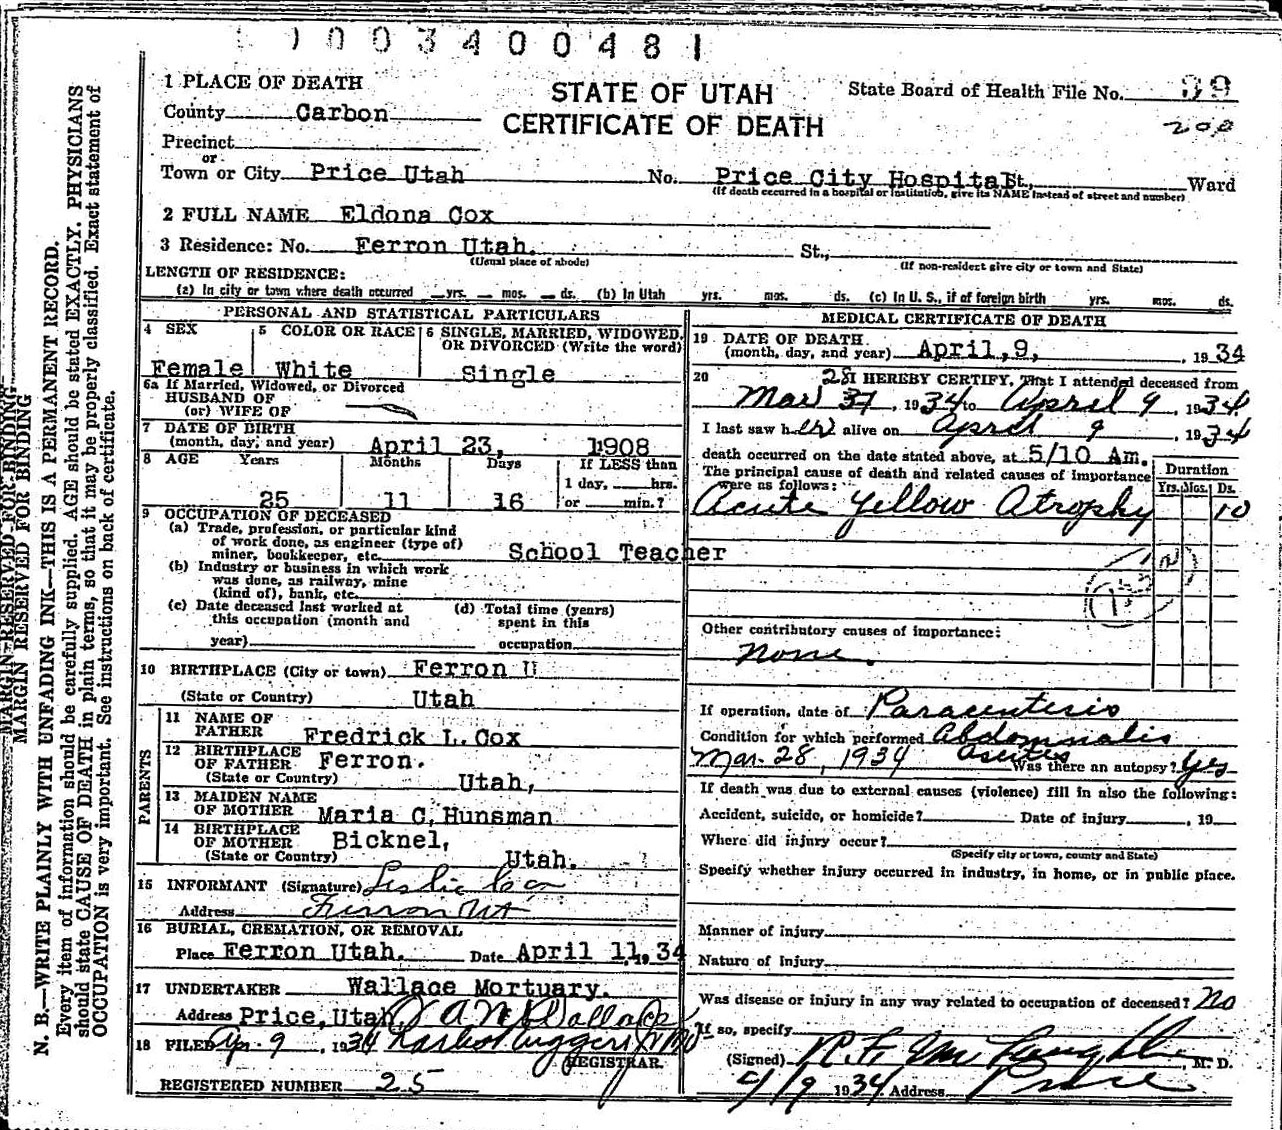 1003400481
1 PLACE OF DEATH
STATE OF UTAH
CERTIFICATE OF DEATH
State Board of Health File No. 89
200
County Carbon
Precinct
or
Town or City Price Utah No. Price City Hospital St., Ward
(If death occurred in a hospital or institution, give its NAME instead of street and number)
2 FULL NAME Eldona Cox
3 Residence: No. Ferron Utah. St.,
(Usual place of abode) (If non-resident give city or town and State)
LENGTH OF RESIDENCE:
(a) In city or town where death occurred yrs. mos. ds. (b) In Utah yrs. mos. ds. (c) In U. S., if of foreign birth yrs. mos. ds.
PERSONAL AND STATISTICAL PARTICULARS
4 SEX
Female
5 COLOR OR RACE
White
6 SINGLE, MARRIED, WIDOWED,
OR DIVORCED (Write the word)
Single
6a If Married, Widowed, or Divorced
HUSBAND OF
(or) WIFE OF
7 DATE OF BIRTH
(month, day, and year) April 23, 1908
8 AGE Years Months Days If LESS than
1 day, hrs.
25 11 16 or min.?
9 OCCUPATION OF DECEASED
(a) Trade, profession, or particular kind
of work done, as engineer (type of)
miner, bookkeeper, etc. School Teacher
(b) Industry or business in which work
was done, as railway, mine
(kind of), bank, etc.
(c) Date deceased last worked at
this occupation (month and
year)
(d) Total time (years)
spent in this
occupation
10 BIRTHPLACE (City or town) Ferron U
(State or Country) Utah
PARENTS
11 NAME OF
FATHER Fredrick L. Cox
12 BIRTHPLACE
OF FATHER Ferron.
(State or Country) Utah,
13 MAIDEN NAME
OF MOTHER Maria C, Hunsman
14 BIRTHPLACE
OF MOTHER Bicknel,
(State or Country) Utah. ?
15 INFORMANT (Signature) Leslie Cox
Address Ferron Ut
16 BURIAL, CREMATION, OR REMOVAL
Place Ferron Utah. Date April 11, 19 34
17 UNDERTAKER Wallace Mortuary.
Address Price, Utah Wallace
18 FILED Apr. 9, 1934
REGISTRAR.
REGISTERED NUMBER 25
MEDICAL CERTIFICATE OF DEATH
19 DATE OF DEATH
(month, day, and year) April, 9, , 1934
20 I HEREBY CERTIFY, That I attended deceased from
28
Mar 31, 1934 to April 9, 1934
I last saw her alive on April 9, 1934
death occurred on the date stated above, at 5/10 Am.
The principal cause of death and related causes of importance
were as follows:
Duration
Yrs. Mos. Ds.
Acute Yellow Atrophy 10
Other contributory causes of importance:
None.
If operation, date of Paracentesis
Condition for which performed Abdomnalis
Mar. 28, 1934 Ascites Was there an autopsy? Yes
If death was due to external causes (violence) fill in also the following:
Accident, suicide, or homicide? Date of injury , 19
Where did injury occur?
(Specify city or town, county and State)
Specify whether injury occurred in industry, in home, or in public place.
Manner of injury
Nature of Injury
Was disease or injury in any way related to occupation of deceased? No
If so, specify
(Signed) M. D.
4/9 1934 Address Price
MARGIN RESERVED FOR BINDING
MARGIN RESERVED FOR BINDING
N. B.—WRITE PLAINLY WITH UNFADING INK—THIS IS A PERMANENT RECORD.
Every item of information should be carefully supplied. AGE should be stated EXACTLY. PHYSICIANS
should state CAUSE OF DEATH in plain terms, so that it may be properly classified. Exact statement of
OCCUPATION is very important. See instructions on back of certificate.